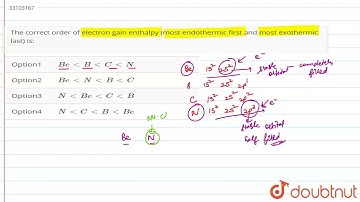 33103167
The correct order of electron gain enthalpy (most endothermic first and most exothermic last) is:
Option1 Be < B < C < N
Option2 Be < N < B < C
Option3 N < Be < C < B
Option4 N < C < B < Be
Be 1s² 2s² e⁻ stable orbital - completely filled
B 1s² 2s² 2p¹
C 1s² 2s² 2p²
N 1s² 2s² 2p³ e⁻
stable orbital
half filled
Be N
doubtnut